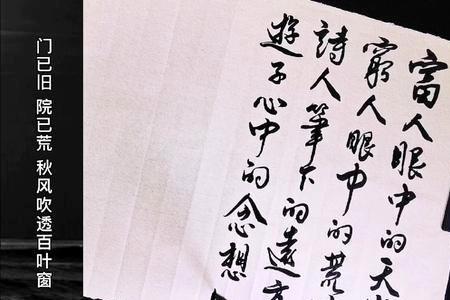 富人眼中的天
窮人眼中的荒
詩人筆下的遠
遊子心中的念想
门已旧 院已荒 秋风吹透百叶窗